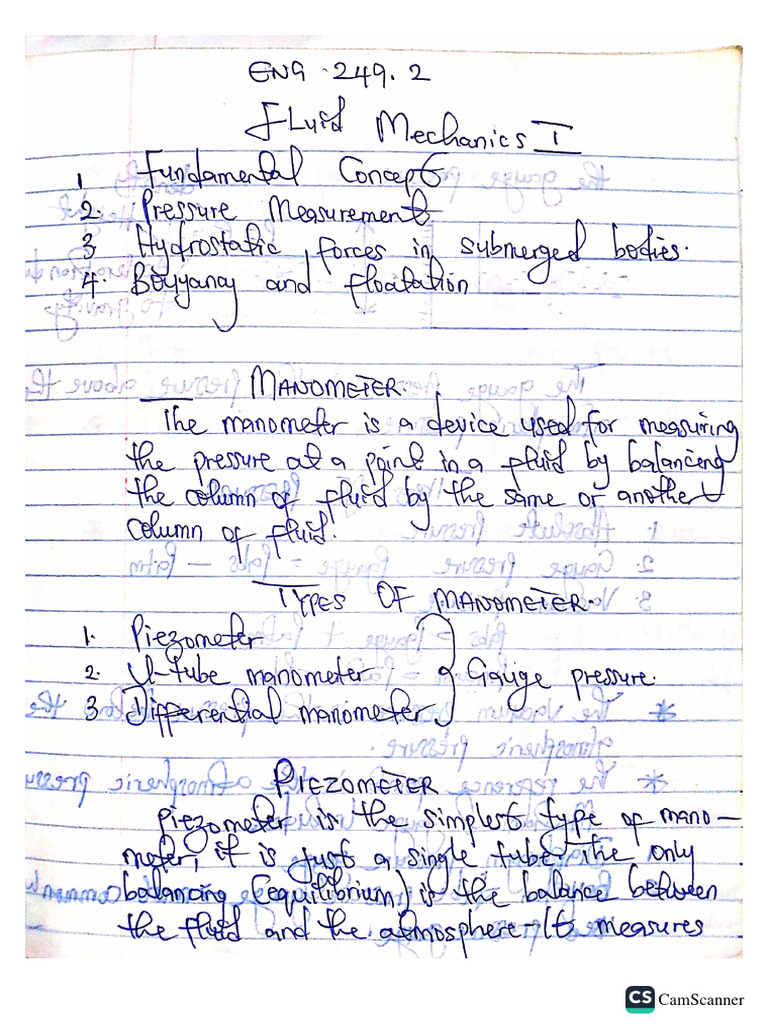 ENG 249.2
Fluid Mechanics I
1 Fundamental Concept
2. Pressure Measurement
3 Hydrostatic forces in submerged bodies.
4. Bouyancy and floatation
MANOMETER.
The manometer is a device used for measuring
the pressure at a point in a fluid by balancing
the column of fluid by the same or another
column of fluid.
TYPES OF MANOMETER.
1. Piezometer
2. U-tube manometer } Gauge pressure.
3 Differential manometer
PIEZOMETER
Piezometer is the simplest type of mano-
meter, it is just a single tube. The only
balancing (equilibrium) is the balance between
the fluid and the atmosphere - It measures
CS CamScanner